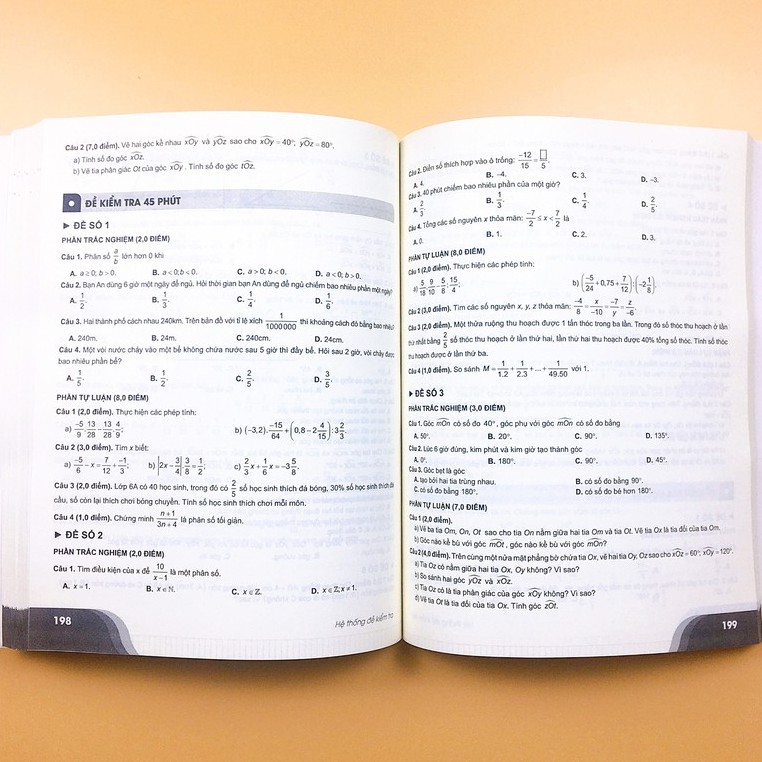 Câu 2 (7,0 điểm). Vẽ hai góc kề nhau xOy và yOz sao cho xOy = 40°; yOz = 80°.
a) Tính số đo góc xOz.
b) Vẽ tia phân giác Ot của góc xOy. Tính số đo góc tOz.
ĐỀ KIỂM TRA 45 PHÚT
► ĐỀ SỐ 1
PHẦN TRẮC NGHIỆM (2,0 ĐIỂM)
Câu 1. Phân số a/b lớn hơn 0 khi
A. a ≥ 0; b > 0. B. a < 0; b < 0. C. a > 0; b < 0. D. a < 0; b > 0.
Câu 2. Bạn An dùng 6 giờ một ngày để ngủ. Hỏi thời gian bạn An dùng để ngủ chiếm bao nhiêu phần một ngày?
A. 1/2. B. 1/3. C. 1/4. D. 1/6.
Câu 3. Hai thành phố cách nhau 240km. Trên bản đồ với tỉ lệ xích 1/1000000 thì khoảng cách đó bằng bao nhiêu?
A. 240m. B. 24m. C. 240cm. D. 24cm.
Câu 4. Một vòi nước chảy vào một bể không chứa nước sau 5 giờ thì đầy bể. Hỏi sau 2 giờ, vòi chảy được
bao nhiêu phần bể?
A. 1/5. B. 1/2. C. 2/5. D. 3/5.
PHẦN TỰ LUẬN (8,0 ĐIỂM)
Câu 1 (2,0 điểm). Thực hiện các phép tính:
a) -5/9 . 13/28 - 13/28 . 4/9; b) (-3,2) . -15/64 + (0,8 - 2 4/15) : 3 2/3.
Câu 2 (3,0 điểm). Tìm x biết:
a) -5/6 - x = 7/12 + -1/3; b) |2x - 3/4| . 3/8 = 1/2; c) 2/3 x + 1/6 x = -3 5/8.
Câu 3 (2,0 điểm). Lớp 6A có 40 học sinh, trong đó có 2/5 số học sinh thích đá bóng, 30% số học sinh thích đá
cầu, số còn lại thích chơi bóng chuyền. Tính số học sinh thích chơi mỗi môn.
Câu 4 (1,0 điểm). Chứng minh n+1/3n+4 là phân số tối giản.
► ĐỀ SỐ 2
PHẦN TRẮC NGHIỆM (2,0 ĐIỂM)
Câu 1. Tìm điều kiện của x để 10/x-1 là một phân số.
A. x = 1. B. x ∈ ℕ. C. x ∈ ℤ. D. x ∈ ℤ; x ≠ 1.
198
Hệ thống đề kiểm tra
Câu 2. Điền số thích hợp vào ô trống: -12/15 = □/5.
A. 4. B. -4. C. 3. D. -3.
Câu 3. 40 phút chiếm bao nhiêu phần của một giờ?
A. 2/3. B. 1/3. C. 1/4. D. 2/5.
Câu 4. Tổng các số nguyên x thỏa mãn: -7/2 ≤ x < 7/2 là
A. 0. B. 1. C. 2. D. 3.
PHẦN TỰ LUẬN (8,0 ĐIỂM)
Câu 1 (2,0 điểm). Thực hiện các phép tính:
b) (-5/24 + 0,75 + 7/12) : (-2 1/8).
Câu 2 (3,0 điểm). Tìm các số nguyên x, y, z thỏa mãn: -4/8 = x/-10 = -7/y = z/-6.
Câu 3 (2,0 điểm). Một thửa ruộng thu hoạch được 1 tấn thóc trong ba lần. Trong đó số thóc thu hoạch ở lần
thứ nhất bằng 2/5 số thóc thu hoạch ở lần thứ hai, lần thứ hai thu hoạch được 40% tổng số thóc. Tính số thóc
thu hoạch được ở lần thứ ba.
Câu 4 (1,0 điểm). So sánh M = 1/1.2 + 1/2.3 + ... + 1/49.50 với 1.
► ĐỀ SỐ 3
PHẦN TRẮC NGHIỆM (3,0 ĐIỂM)
Câu 1. Góc mOn có số đo 40°, góc phụ với góc mOn có số đo bằng
A. 50°. B. 20°. C. 90°. D. 135°.
Câu 2. Lúc 6 giờ đúng, kim phút và kim giờ tạo thành góc
A. 0°. B. 180°. C. 90°. D. 45°.
Câu 3. Góc bẹt là góc
A. tạo bởi hai tia trùng nhau. B. có số đo bằng 90°.
C. có số đo bằng 180°. D. có số đo bé hơn 180°.
PHẦN TỰ LUẬN (7,0 ĐIỂM)
Câu 1 (2,0 điểm).
a) Vẽ ba tia Om, On, Ot sao cho tia On nằm giữa hai tia Om và tia Ot. Vẽ tia Ox là tia đối của tia Om.
b) Góc nào kề bù với góc mOt, góc nào kề bù với góc mOn?
Câu 2 (4,0 điểm). Trên cùng một nửa mặt phẳng bờ chứa tia Ox, vẽ hai tia Oy, Oz sao cho xOz = 60°; xOy = 120°.
a) Tia Oz có nằm giữa hai tia Ox, Oy không? Vì sao?
b) So sánh hai góc yOz và xOz.
c) Tia Oz có là tia phân giác của góc xOy không? Vì sao?
d) Vẽ tia Ot là tia đối của tia Ox. Tính góc zOt.
199